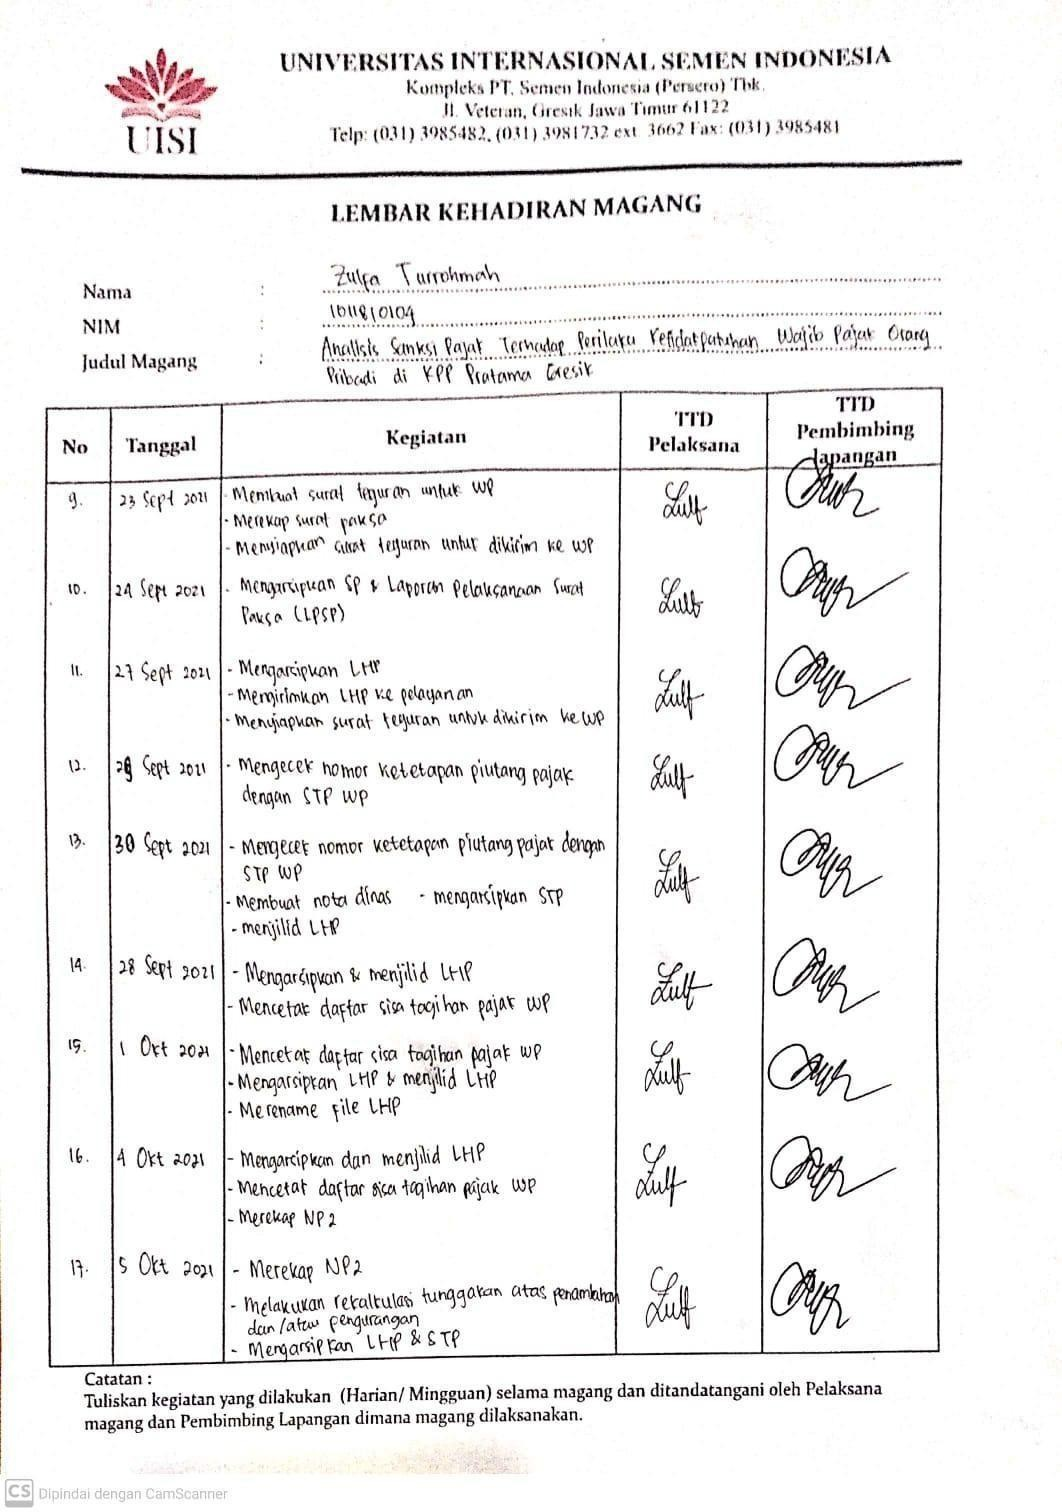 UNIVERSITAS INTERNASIONAL SEMEN INDONESIA
Kompleks PT. Semen Indonesia (Persero) Tbk.
Jl. Veteran, Gresik Jawa Timur 61122
Telp: (031) 3985482, (031) 3981732 ext. 3662 Fax: (031) 3985481
UISI
LEMBAR KEHADIRAN MAGANG
Nama : Zulfa Turrohmah
NIM : 1011810104
Judul Magang : Analisis Sanksi Pajak Terhadap Perilaku Ketidakpatuhan Wajib Pajak Orang
Pribadi di KPP Pratama Gresik
No Tanggal Kegiatan TTD Pelaksana TTD Pembimbing lapangan
9. 23 Sept 2021 - Membuat surat teguran untuk WP
- Merekap surat paksa
- Menyiapkan surat teguran untuk dikirim ke WP
10. 24 Sept 2021 - Mengarsipkan SP & Laporan Pelaksanaan Surat
Paksa (LPSP)
11. 27 Sept 2021 - Mengarsipkan LHP
- Mengirimkan LHP ke pelayanan
- Menyiapkan surat teguran untuk dikirim ke WP
12. Sept 2021 - Mengecek nomor ketetapan piutang pajak
dengan STP WP
13. 30 Sept 2021 - Mengecek nomor ketetapan piutang pajak dengan
STP WP
- Membuat nota dinas - mengarsipkan STP
- menjilid LHP
14. 28 Sept 2021 - Mengarsipkan & menjilid LHP
- Mencetak daftar sisa tagihan pajak WP
15. 1 Okt 2021 - Mencetak daftar sisa tagihan pajak WP
- Mengarsipkan LHP & menjilid LHP
- Merename file LHP
16. 4 Okt 2021 - Mengarsipkan dan menjilid LHP
- Mencetak daftar sisa tagihan pajak WP
- Merekap NP2
17. 5 Okt 2021 - Merekap NP2
- Melakukan rekalkulasi tunggakan atas penambahan
dan/atau pengurangan
- Mengarsipkan LHP & STP
Catatan :
Tuliskan kegiatan yang dilakukan (Harian/ Mingguan) selama magang dan ditandatangani oleh Pelaksana
magang dan Pembimbing Lapangan dimana magang dilaksanakan.
CS Dipindai dengan CamScanner